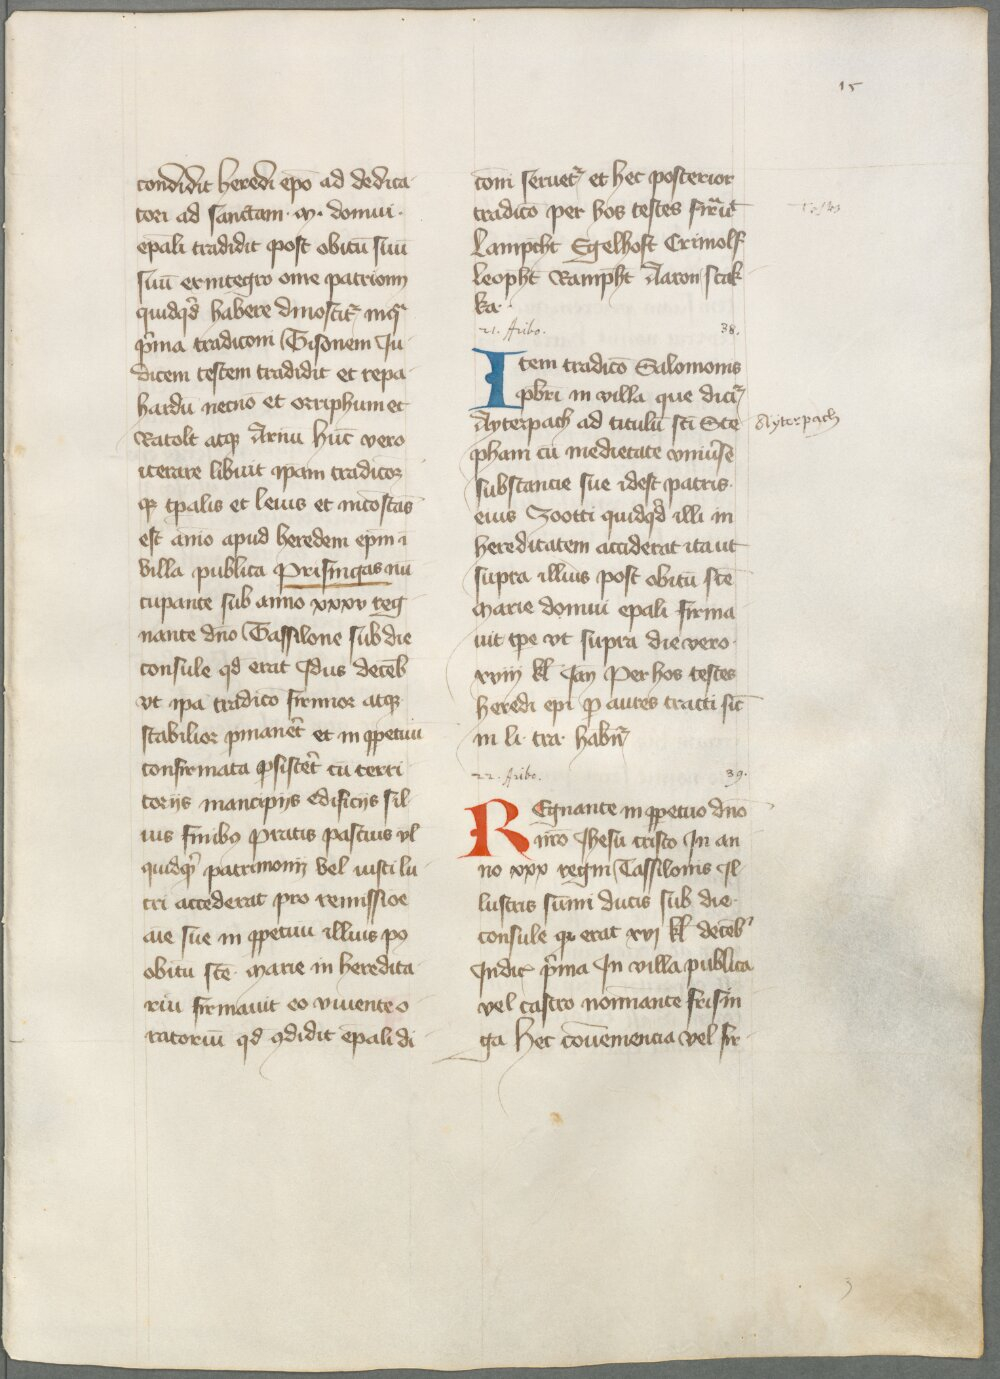 15
condidit heredi epō ad dedica
tori ad sanctam · M · domui ·
epali tradidit post obitū suū
suū exintegro om̄e patrionij
quidqd habere dinoscit inqr
p̄ma tradiconi Gisonem Ju
dicem testem tradidit et repa
hardū necno et orriphum et
Ratolt atqz Arnu hūc vero
iterare libuit ipam tradicōz
qz tpalis et leuis et incostās
est anīo apud heredem epm̄ i
villa publica Prisingas nū
cupante sub anno xxxv reg
nante dno Tassilone sub die
consule qd erat Jdus decēb
vt ipa tradicō firmior atqz
stabilior pmanet et in ppetuū
confirmata psistet cū terri
torijs mancipijs edificijs sil
uis finibz pratis pascuis vl
quidqd patrimonij vel iusti lu
cri accederat pro remissioe
aīe sue in ppetuū illius po
obitū stē · Marie in heredita
riū firmauit eo viuente o
ratoriū qd 9didit epali di
tōni seruet et hec posterior
tradicō per hos testes firāt
Lampcht Egelhost Crimolf
Leopht Rampht Aaron scak
ka ·
21. Aribo. 38.
Item tradicō Salomonis
pbrī in villa que dicit
Ayterpach ad titulū sti Ste
Ayterpach
phani cū medietate vniuse
substancie sue idest patris
eius Zootti quidqd illi in
hereditatem acciderat ita ut
supra illius post obitū stē
Marie domui epali firma
uit tpe vt supra die vero
xviij kl Jan Per hos testes
heredi epi p aures tracti sic
in li · tra · habn
22. Aribo. 39.
Regnante in ppetuo dnō
nrō Jhesu cristo In an
no xxx regni Tassilonis Jl
lustris sūmi ducis sub die
consule qr erat xvj kl decēb
Indic p̄ma In villa publica
vel castro nominante frisin
ga Hec conuēniencia vel fir
3